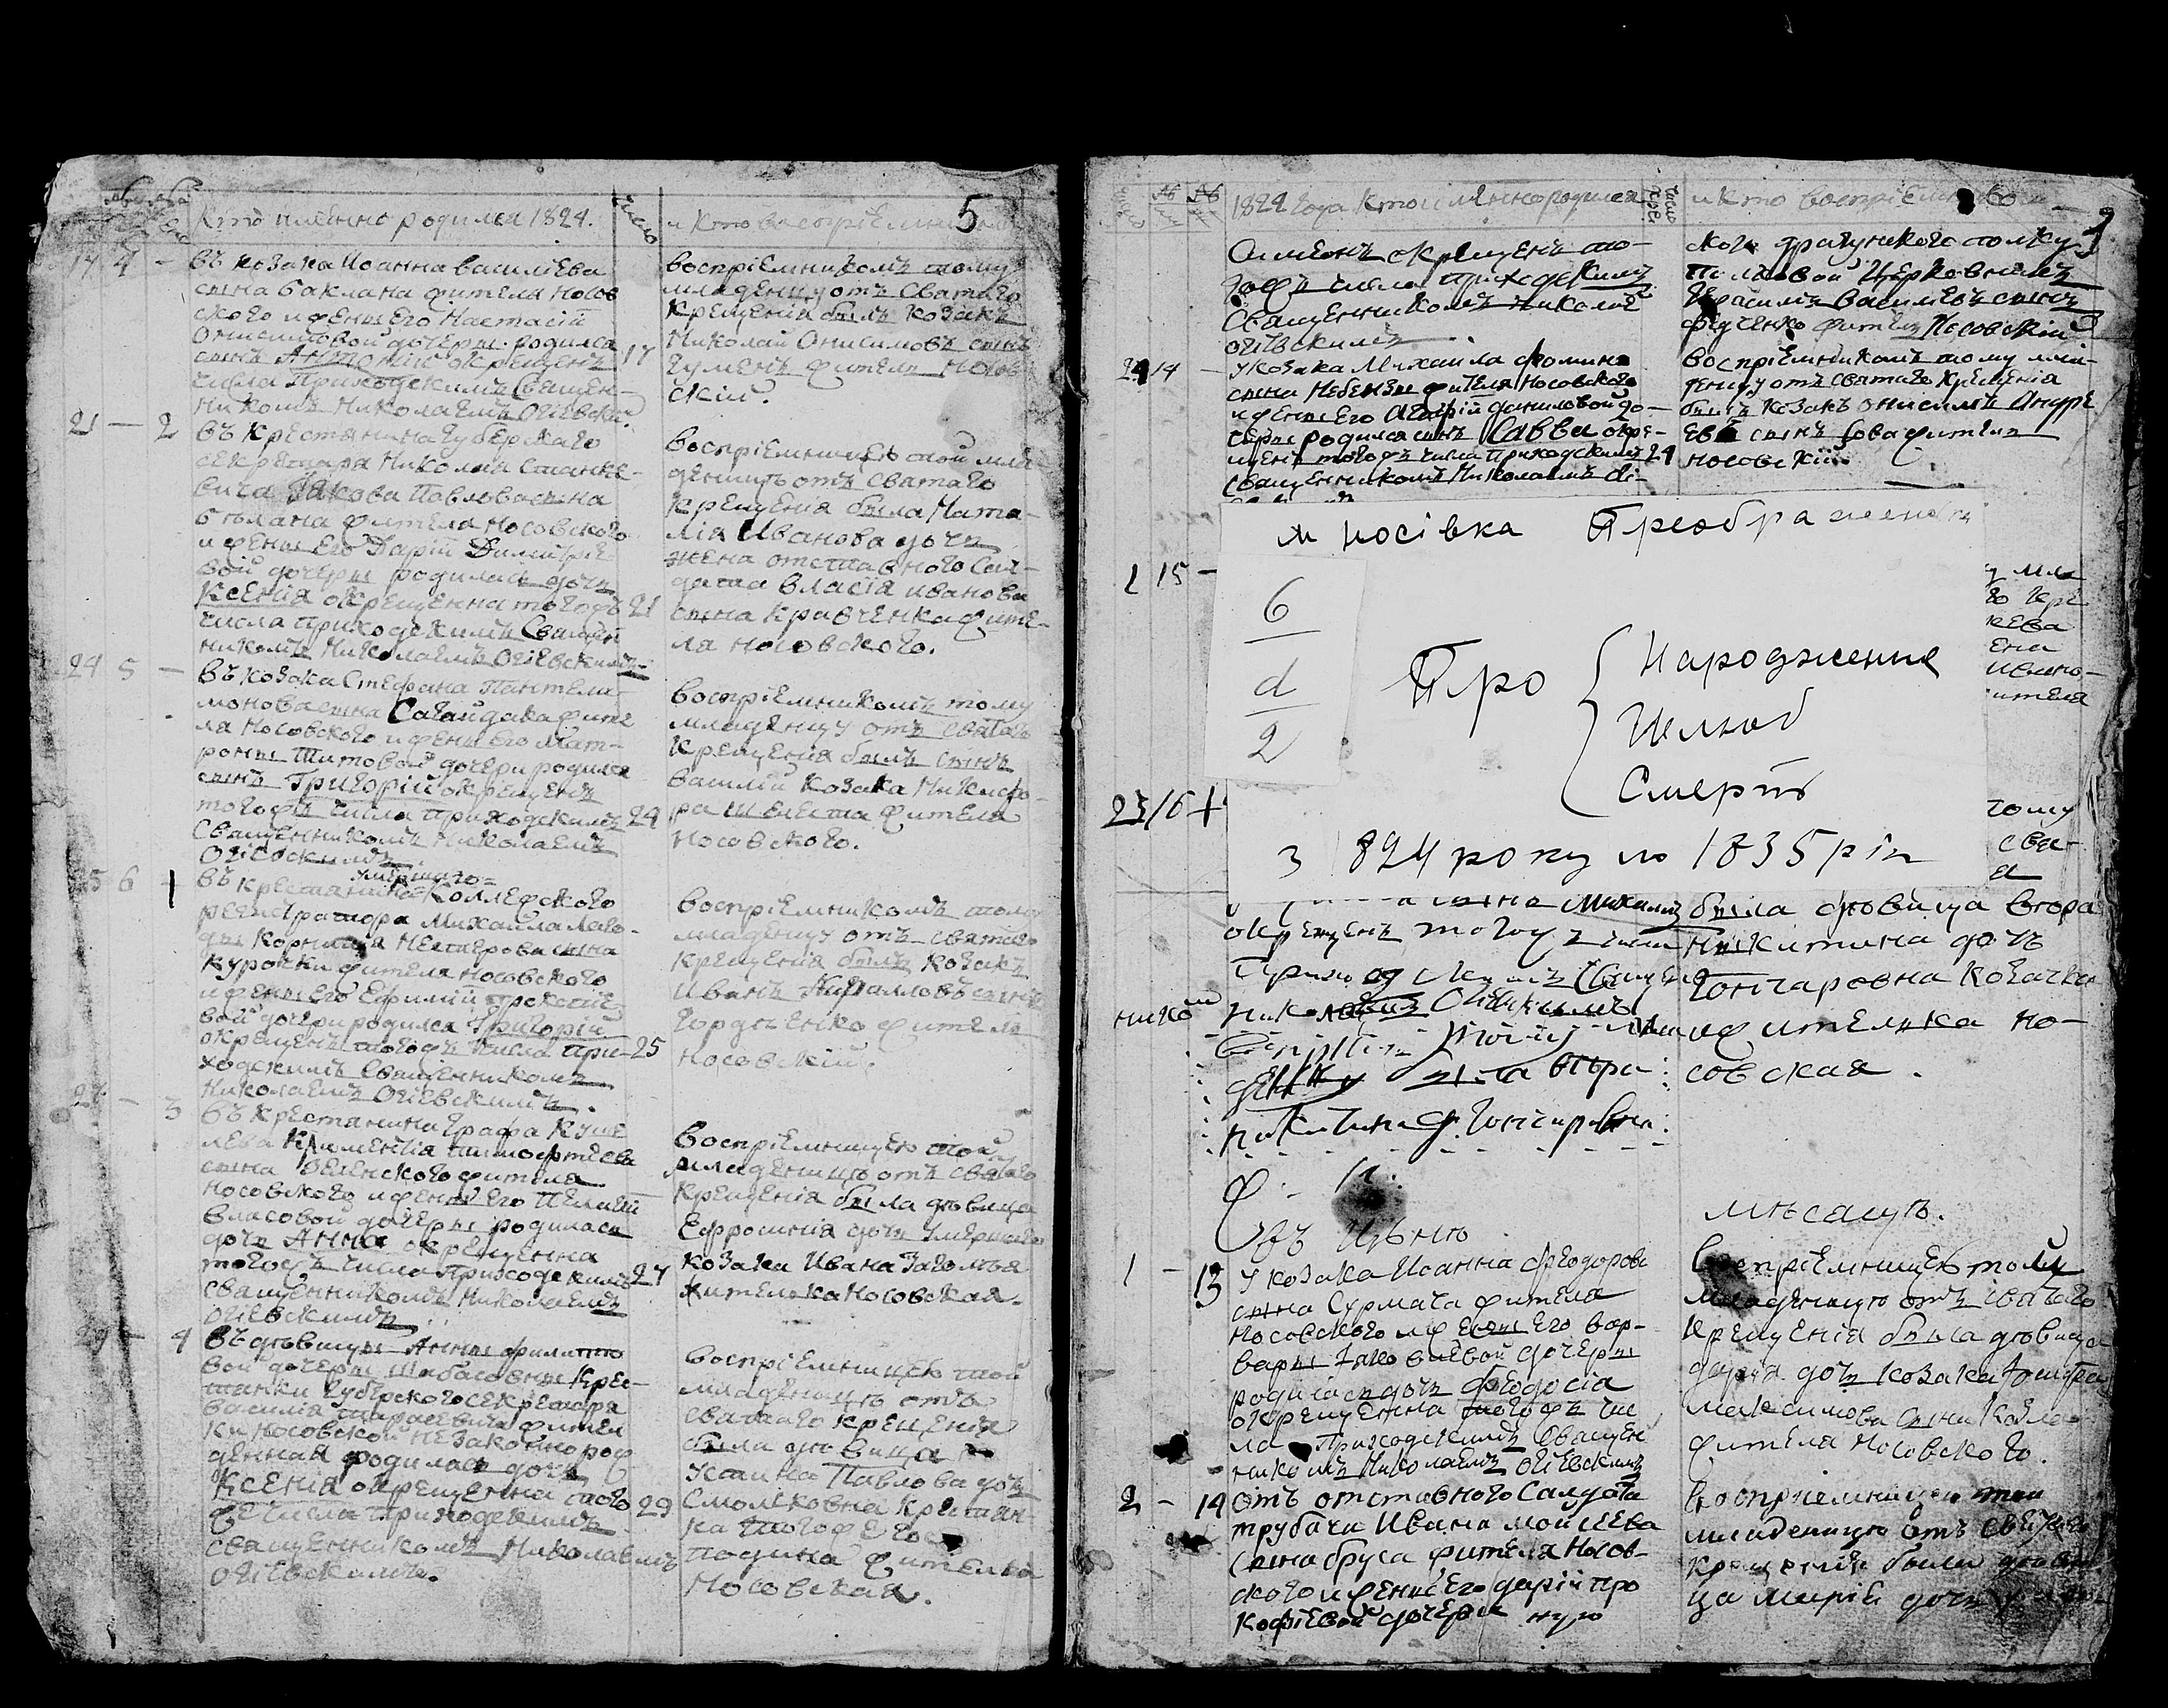 Кто именно родился 1824.
число
и кто воспріемникомъ
5
17 4 -
Въ козака Іоанна Васильева
сына баклана жителя Носов
ского и жены его Настасіи
Онисимовой дочеры родился
сынъ Антоній окрещенъ 17
числа Приходскимъ Священ-
никомъ Николаемъ Огіевским.
воспріемникомъ тому
младенцу отъ Святаго
Крещенія былъ козакъ
Николай Онисимовъ сынъ
гуменъ житель Носов
скій.
21 - 2
Въ крестянина губерскаго
секретара Николая Станке-
вича Якова Павлова сына
бѣлана жителя Носовского
и жены его Даріи Димитріе
вой дочеры родилась дочь
Ксенія окрещенна тогожъ 21
числа приходскимъ Священ
никомъ Николаемъ Огіевскимъ
воспріемницею той мла
деницѣ отъ Святаго
Крещенія была Ната-
лія Иванова дочь
жена отставного Сал-
дата Власія иванова
сына Кравченка жите-
ля Носовского.
24 5 -
Въ козака Стефана Пантела
монова сына Сагайдака жите
ля Носовского и жены его Мат-
роны Титовой дочери родился
сынъ Григорій окрещенъ
тогожъ числа приходскимъ 24
Священникомъ Николаемъ
Огіевскимъ
воспріемникомъ тому
младенцу отъ святаго
Крещенія былъ сынъ
Василій козака Никифо-
ра шелеста жителя
Носовского.
25 6 -
умершаго
Въ крестянина Коллежского
регистратора Михайла Маго-
ды Корнилія Нестерова сына
Курочки жителя Носовского
и жены его Ефиміи прокопіе
вой дочери родился Григорій
окрещенъ тогожъ числа при- 25
ходскимъ Священникомъ
Николаемъ Огіевскимъ.
воспріемникомъ тому
младенцу отъ святаго
крещенія былъ козакъ
Иванъ Михайловъ сынъ
гордіенко житель
Носовскій.
27 - 3
Въ Крестянина Графа Куше
лева Климентія тимофтеева
сына Зеленского жителя
Носовского и жены его Пелагіи
власовой дочеры родилась
дочь Анна окрещенна
тогожъ числа Приходскимъ 27
священникомъ Николаемъ
Огіевскимъ
воспріемницею той
младеницѣ отъ святаго
Крещенія была дѣвица
Ефросинія дочь умершаго
козака Ивана Загомъя
жителька Носовская.
29 - 4
Въ дѣвицы Анны филиппо
вой дочеры Шабасовны Крес-
танки Губерского секретара
Василія тарасевича жител
ки Носовской незаконнорож
денная родилась дочь
Ксенія окрещенна того 29
же числа Приходскимъ
священникомъ Николаемъ
Огіевскимъ.
воспріемницею той
младеницѣ отъ
святаго крещенія
была дѣвица
Устина Павлова дочь
Смолековна Крестян-
ка тогоже гос
подина жителька
Носовская.
1824 года кто именно родился
число
и кто воспріемником
Симеонъ окрещенъ то-
гожъ числа приходскимъ
Священникомъ Николае
огіевскимъ
ского драгунского полку
полковой Церковникъ
Герасимъ Васильевъ сынъ
фідченко житель Носовскій
24 14 -
У козака Михаила фомина
сына Небензы жителя Носовского
и жены его Агафіи даниловой до-
черы родился сынъ Савва окре-
щенъ тогожъ числа Приходскимъ 24
священникомъ Николаемъ Огі-
воспріемникомъ тому мла-
денцу отъ святаго крещенія
былъ козакъ Онисимъ Онуре
евъ сынъ Сова житель
Носовскій.
м Носівка Преображенськ
15 -
6
d
2
Про
Народження
Шлюб
Смерть
З 1824 року по 1835 рік
мла
го кре
ена
ивано-
ителя
23 16
тому
свя-
сына Михаилъ
окрещенъ тогожъ числа
Приходскимъ Священ
никомъ Николаемъ Огіевскимъ
была дѣвица
Никитина дочь
Гончаровна козачка
жителька Но-
совская.
мѣсяцъ.
1 - 13
У козака Іоанна феодорова
сына Сурмача жителя
Носовского и жены его Вар-
вары Яковлевой дочеры
родилась дочь феодосія
окрещенна тогожъ чис
ла Приходскимъ Священ
никомъ Николаемъ Огіевскимъ
Воспріемницею той
младеницѣ отъ святаго
Крещенія была дѣвица
дарія дочь козака
Максимова сына Козла
жителя Носовского.
2 - 14
Отъ отставного Салдата
трубача Ивана Мойсеева
сына бруса жителя Носов-
ского и жены его даріи про
кофіевой дочеры
Воспріемницею той
младеницѣ отъ святаго
крещенія была дѣви
ца Марія дочь